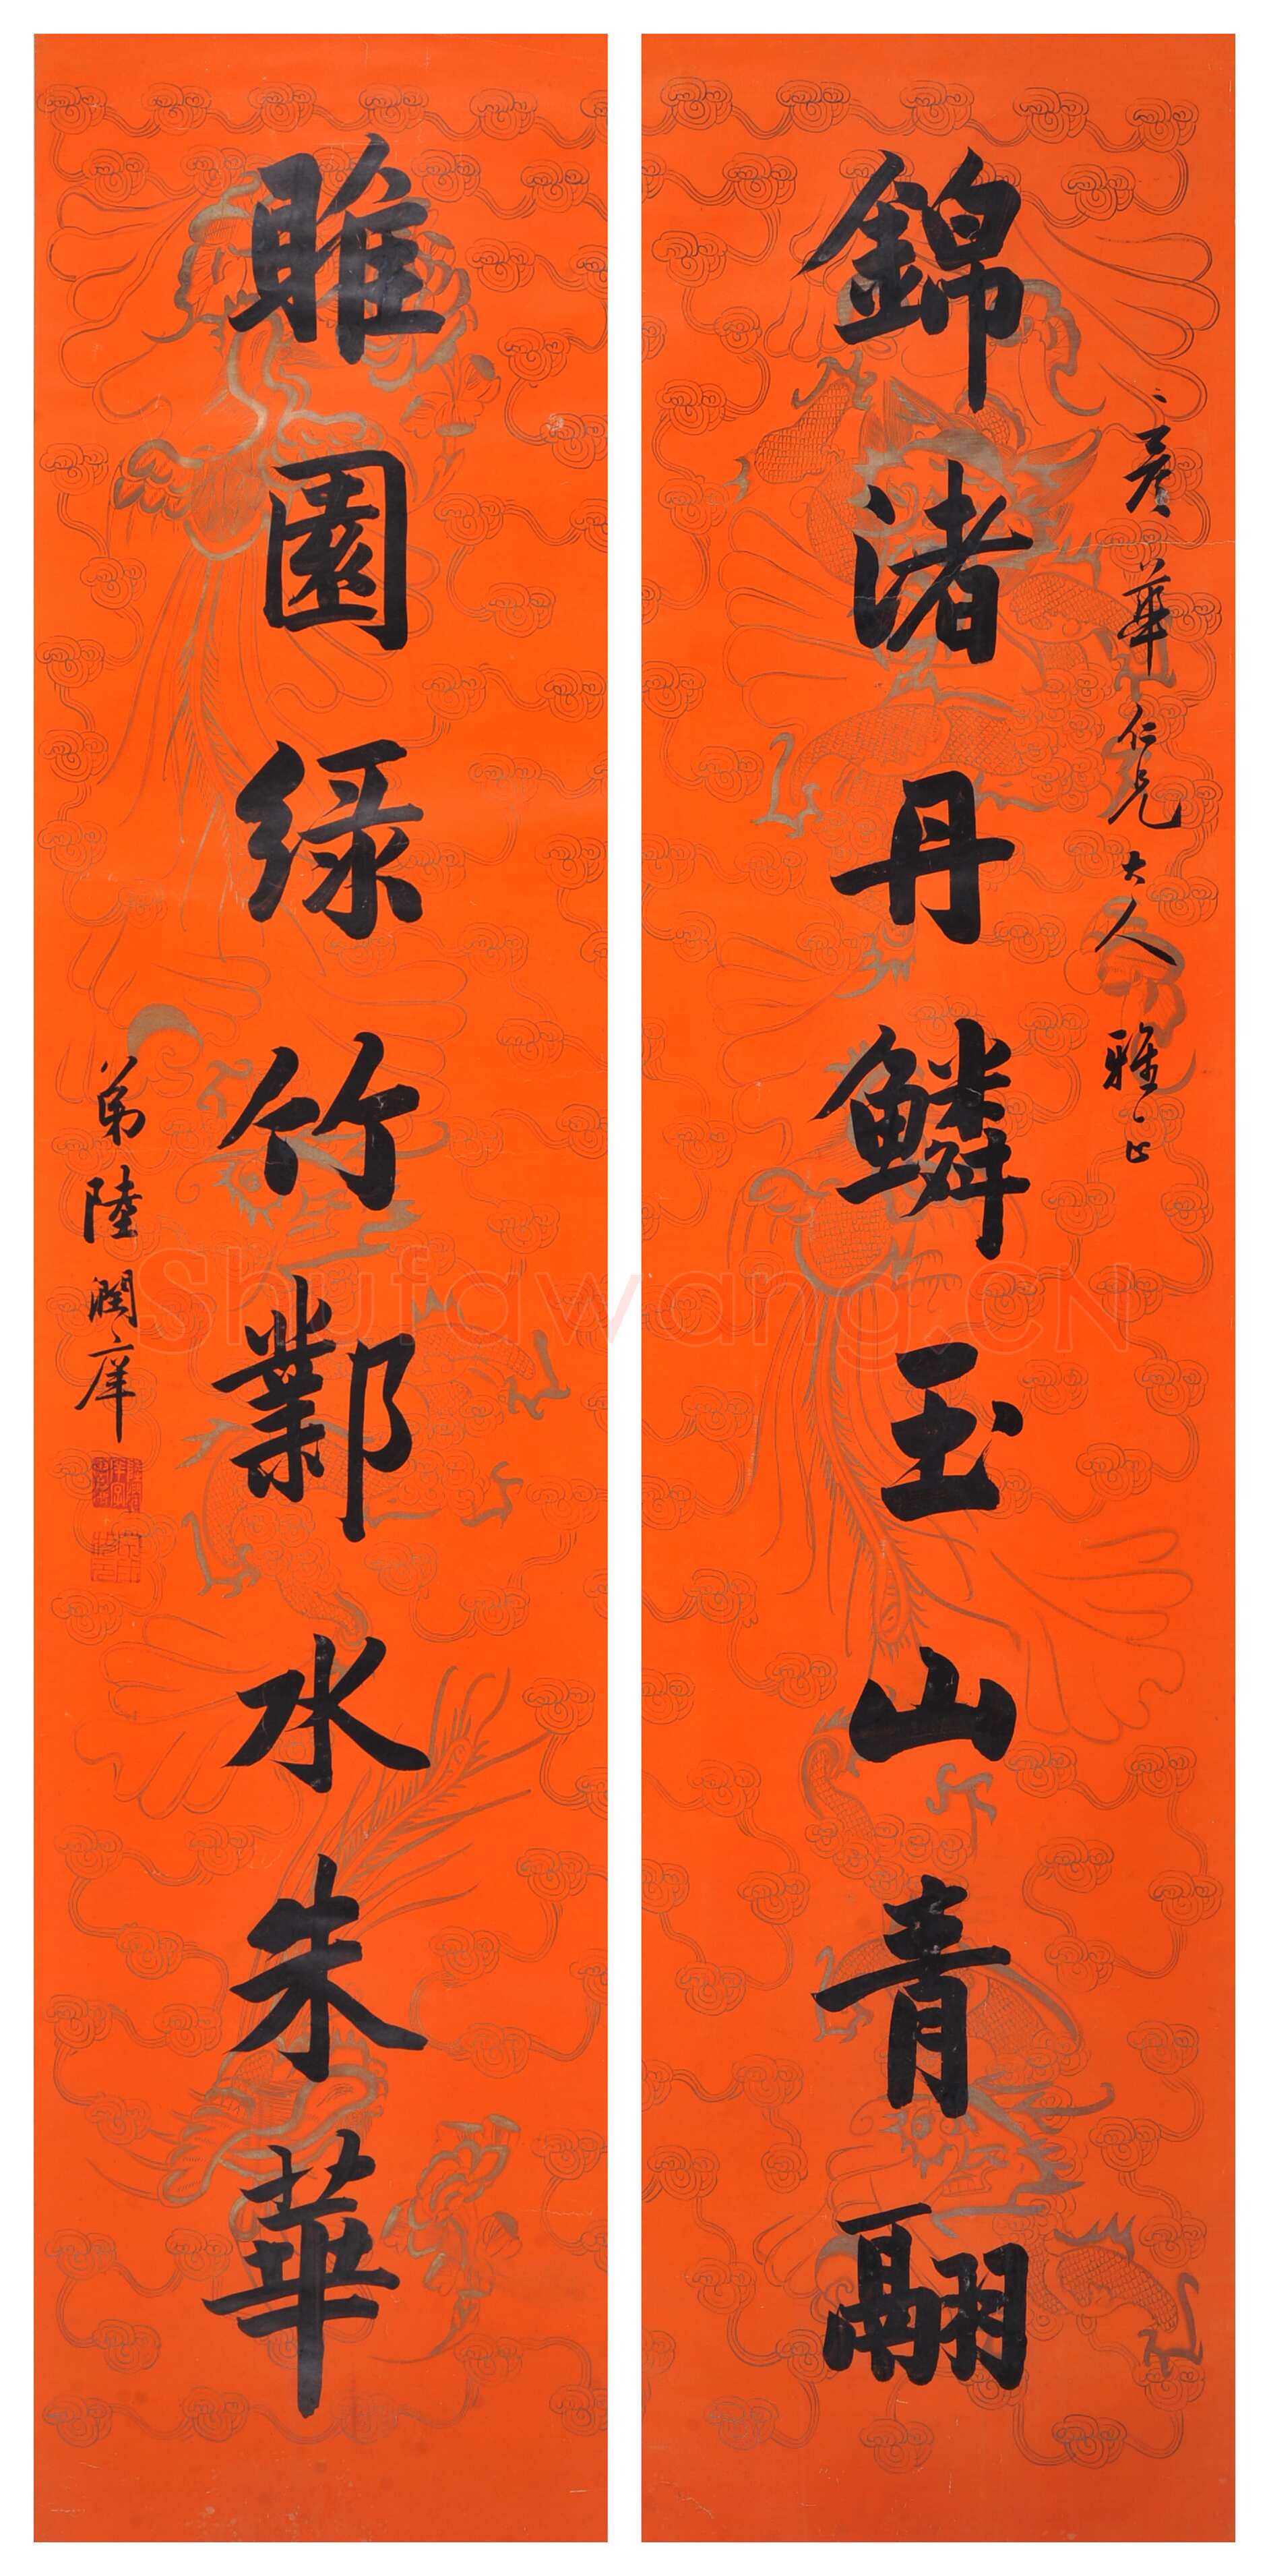 彥華仁兄大人雅正
錦渚丹鱗玉山青翮
睢園緑竹鄴水朱華
弟陸潤庠
Shufawang.CN